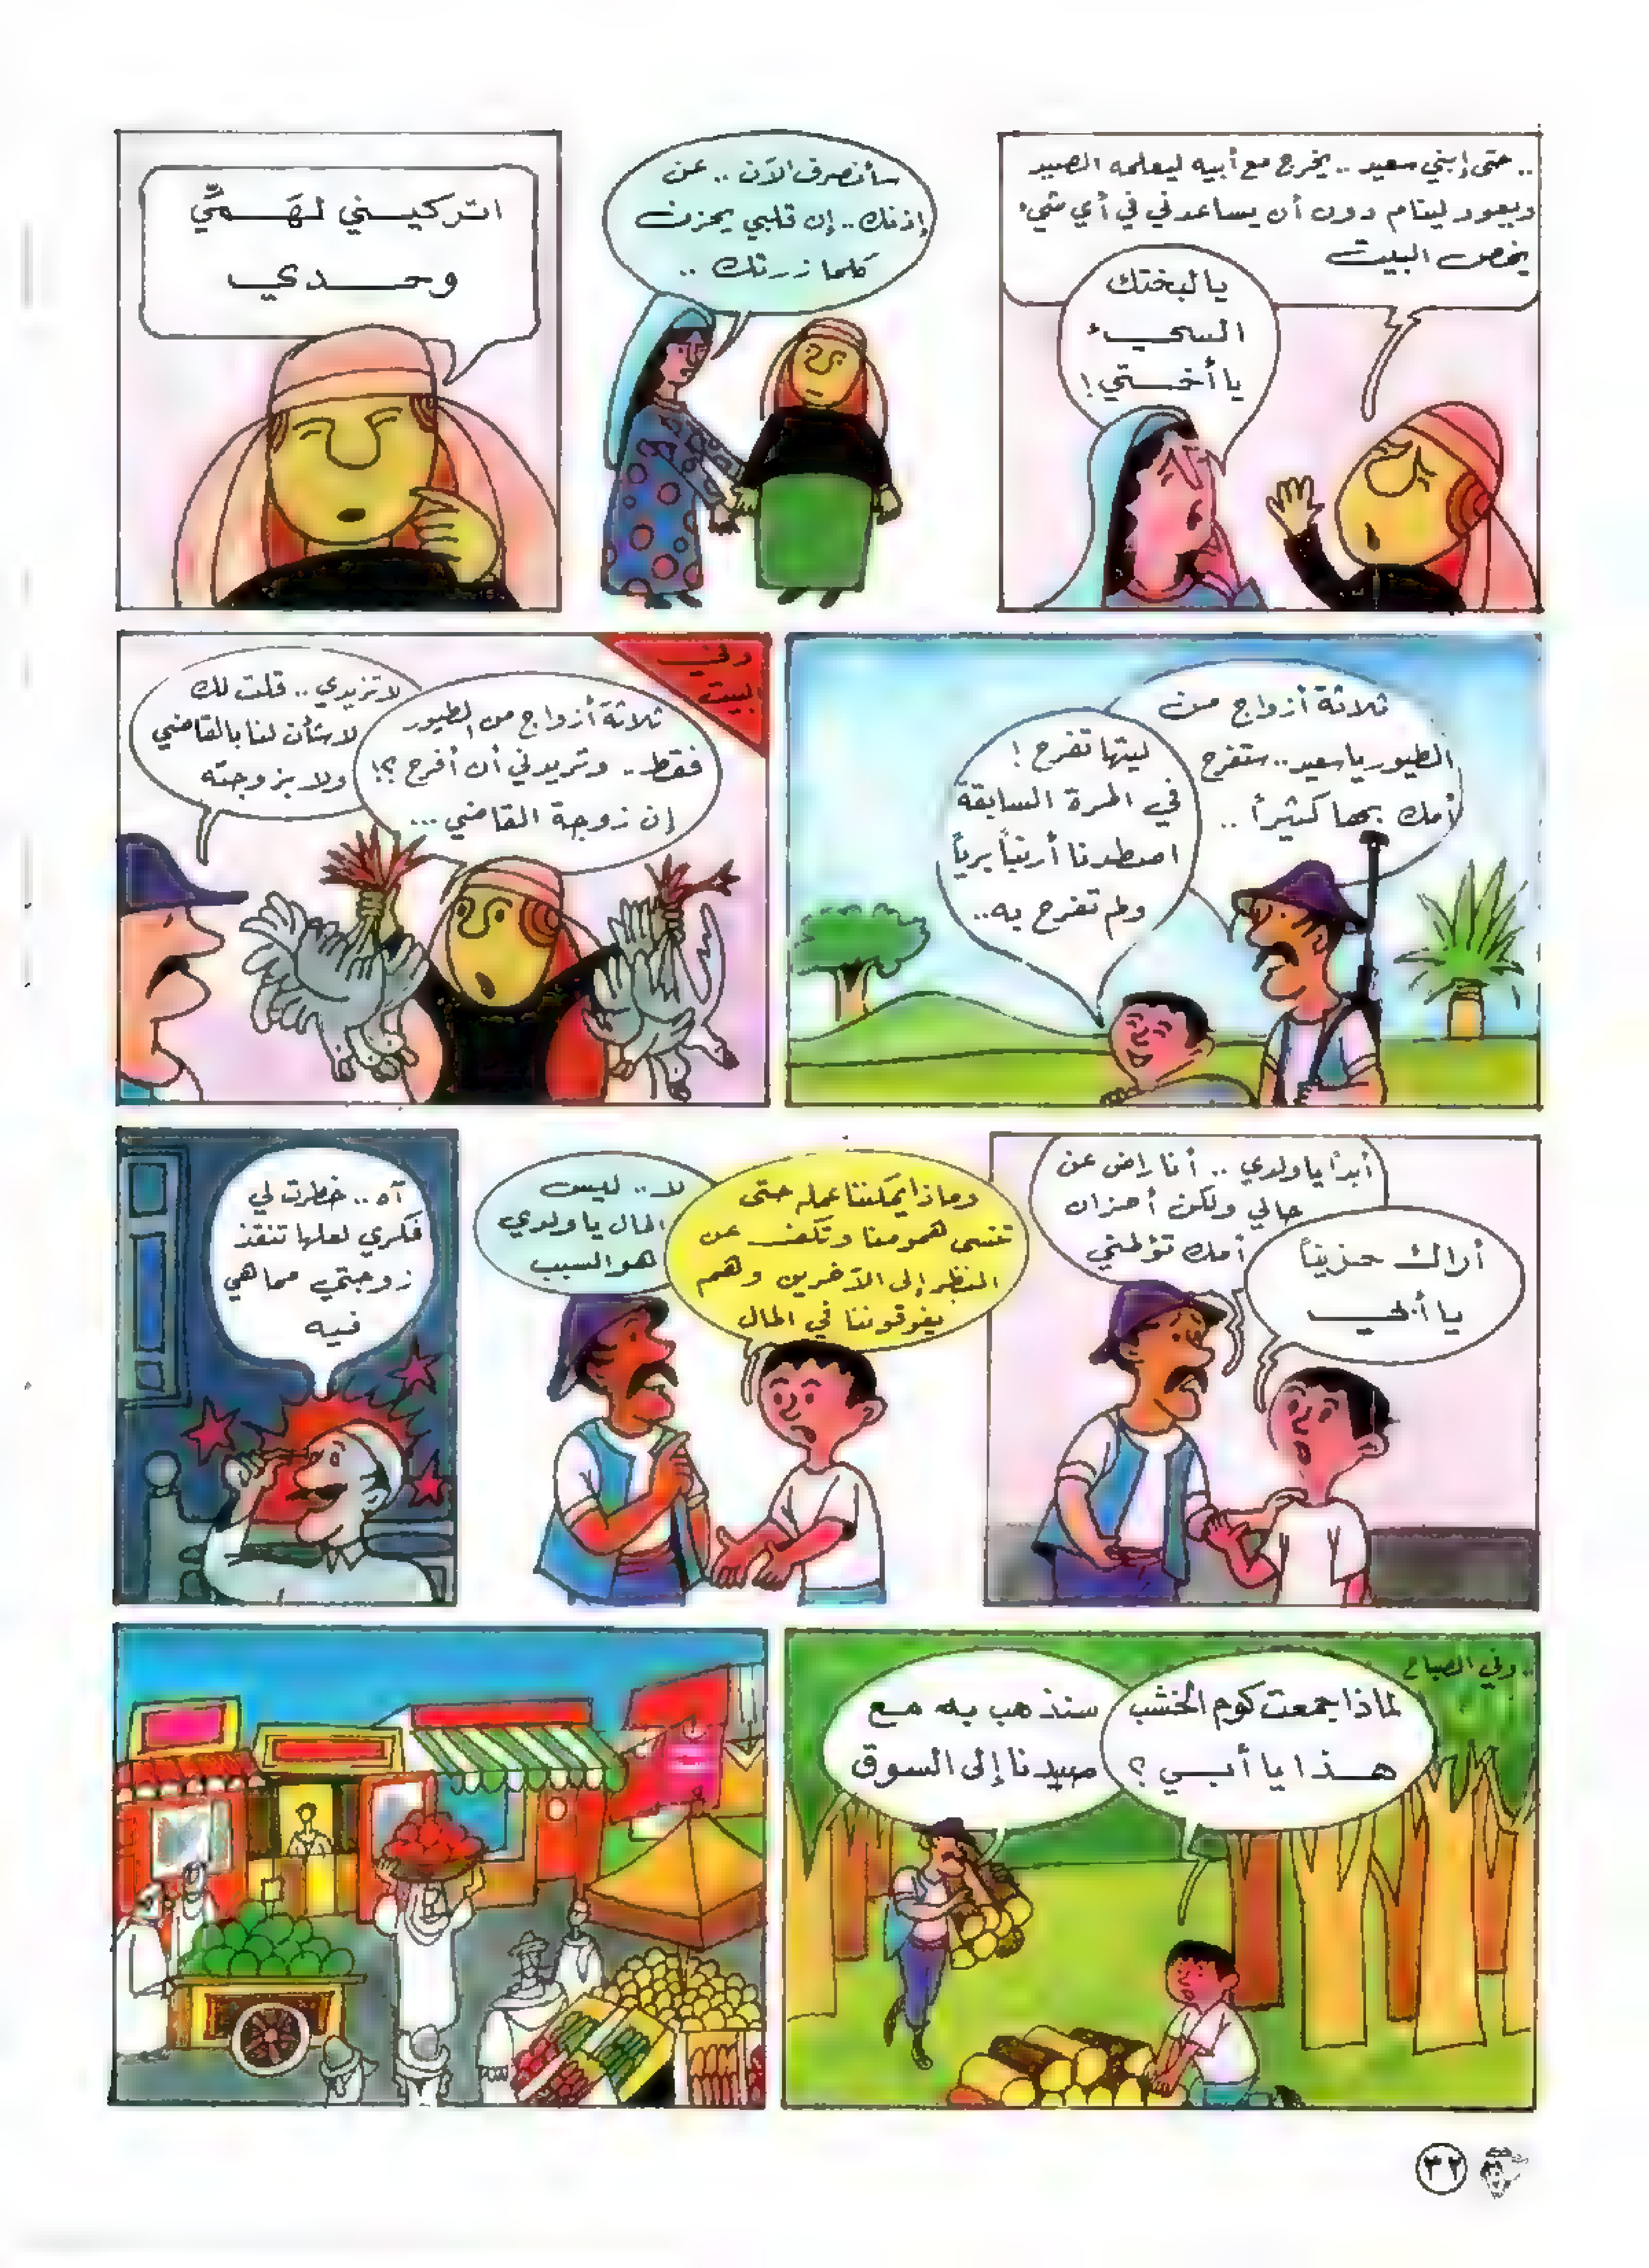 .. حتى إبني سعيد .. يخرج مع أبيه ليعلمه الصيد
ويعود لينام دون أن يساعدني في أي شيء
يخص البيت
يا لبختك
السيء
يا أختي !
سأنصرف الآن .. عن
إذنك .. إن قلبي يحزن
كلما زرتك ..
اتركيني لهَمّي
وحدي
ثلاثة أزواج من
الطيور يا سعيد .. ستفرح
أمك بها كثيراً ..
ليتها تفرح !
في المرة السابقة
اصطدنا أرنباً برياً
ولم تفرح به ..
وفي
البيت
ثلاثة أزواج من الطيور
فقط .. وتريدني أن أفرح ؟!
إن زوجة القاضي ...
لا تزيدي .. قلت لك
لا شأن لنا بالقاضي
ولا بزوجته
أبداً يا ولدي .. أنا راض عن
حالي ولكن أحزان
أمك تؤلمني
أراك حزيناً
يا أبي
وماذا يمكننا عمله حتى
تنسى همومنا وتكف عن
النظر إلى الآخرين وهم
يفوقوننا في المال
لا .. ليس
المال يا ولدي
هو السبب
آه .. خطرت لي
فكرة لعلها تنقذ
زوجتي مما هي
فيه
.. وفي الصباح
لماذا جمعت كوم الخشب
هذا يا أبي ؟
سنذهب به مع
صيدنا إلى السوق
٣٢